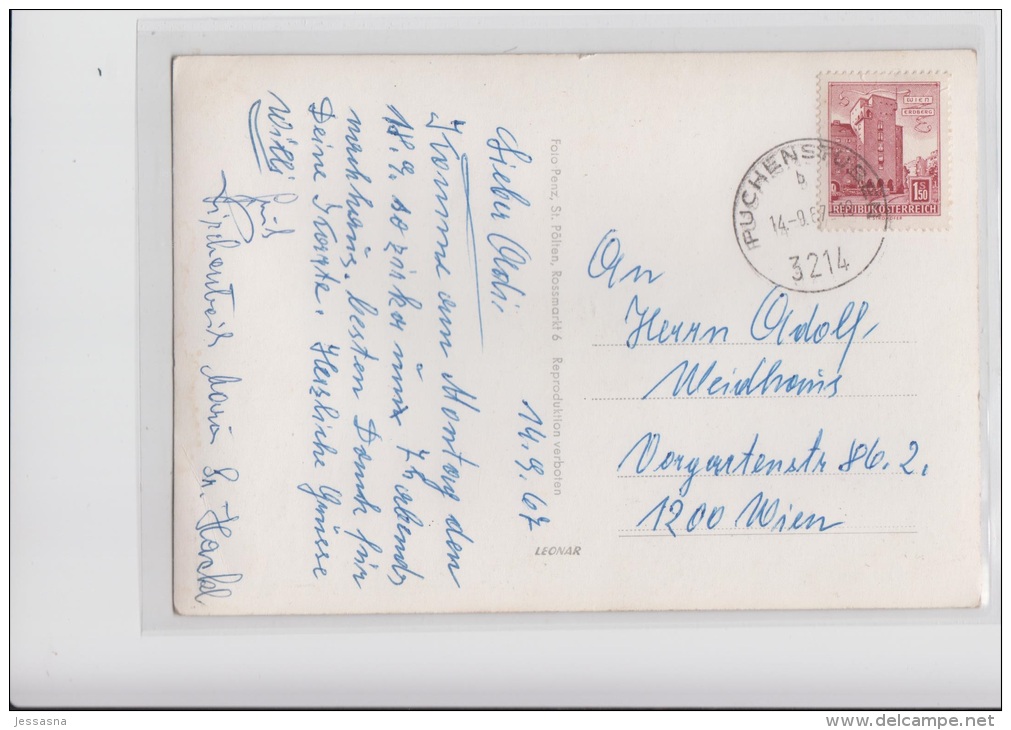 14.9.67
Lieber Adi.
Komme am Montag den
18.9. so zirka um 7h abends
nachhaus. besten Dank für
Deine Karte. Herzliche Grüsse
Willi
Maria
Foto Penz, St. Pölten, Rossmarkt 6 Reproduktion verboten
LEONAR
WIEN
ERDBERG
S
1.50
REPUBLIK ÖSTERREICH
PUCHENSTUBEN
b
14.-9.67
3214
An
Herrn Adolf
Weidhaus
Vorgartenstr 86.2.
1200 Wien
jessasna
delcampe.net